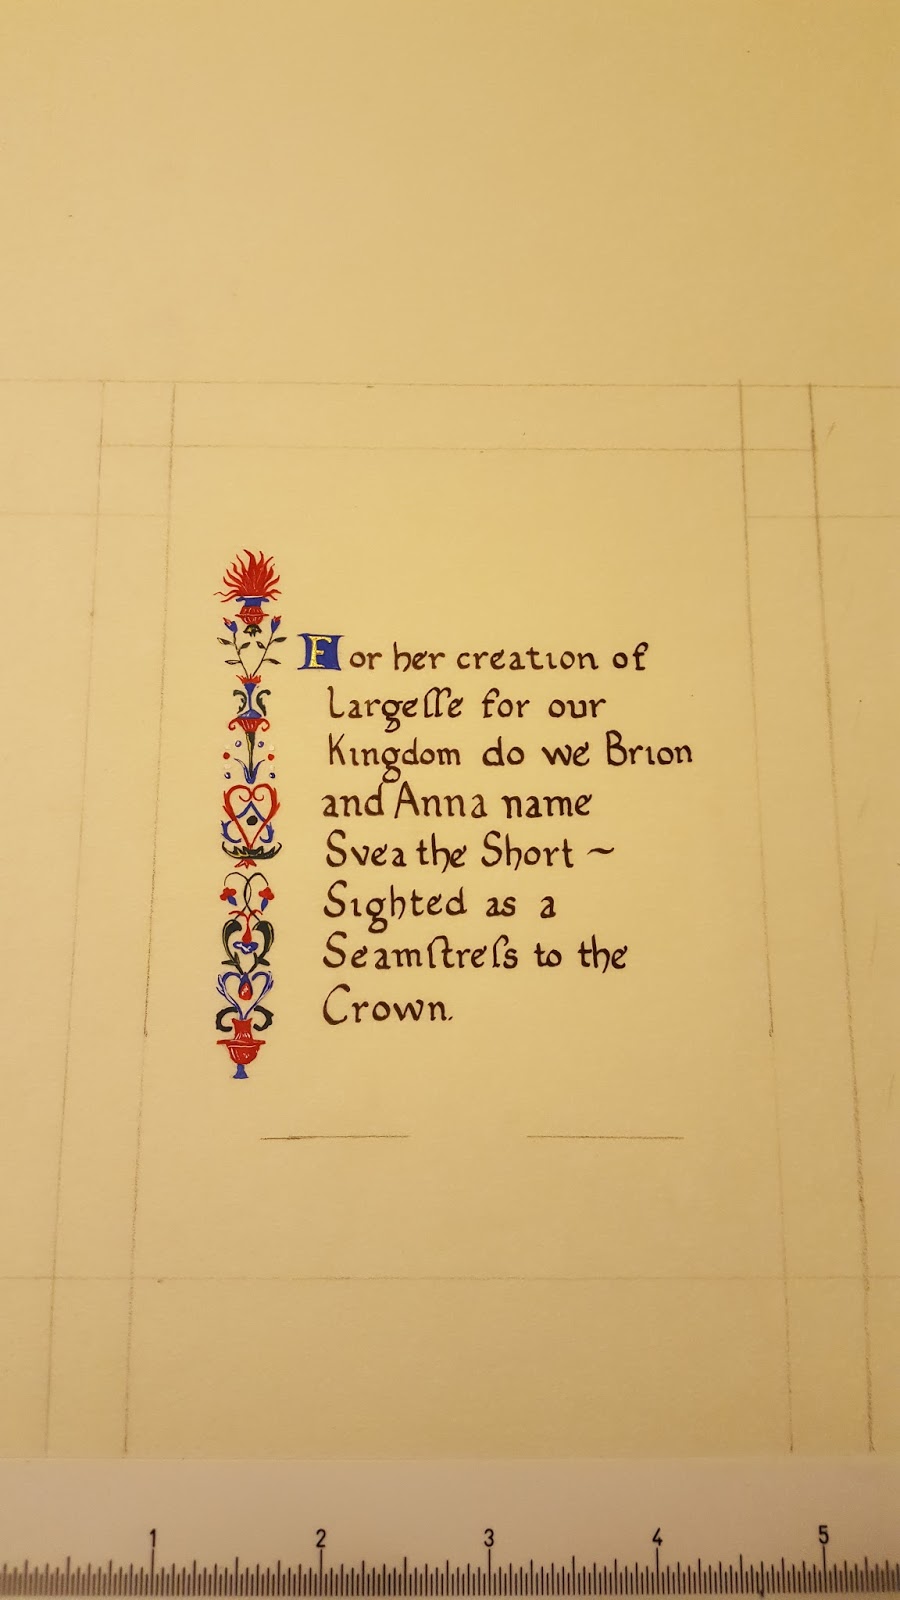 For her creation of
Largeſſe for our
Kingdom do we Brion
and Anna name
Svea the Short ~
Sighted as a
Seamſtreſs to the
Crown.
1 2 3 4 5